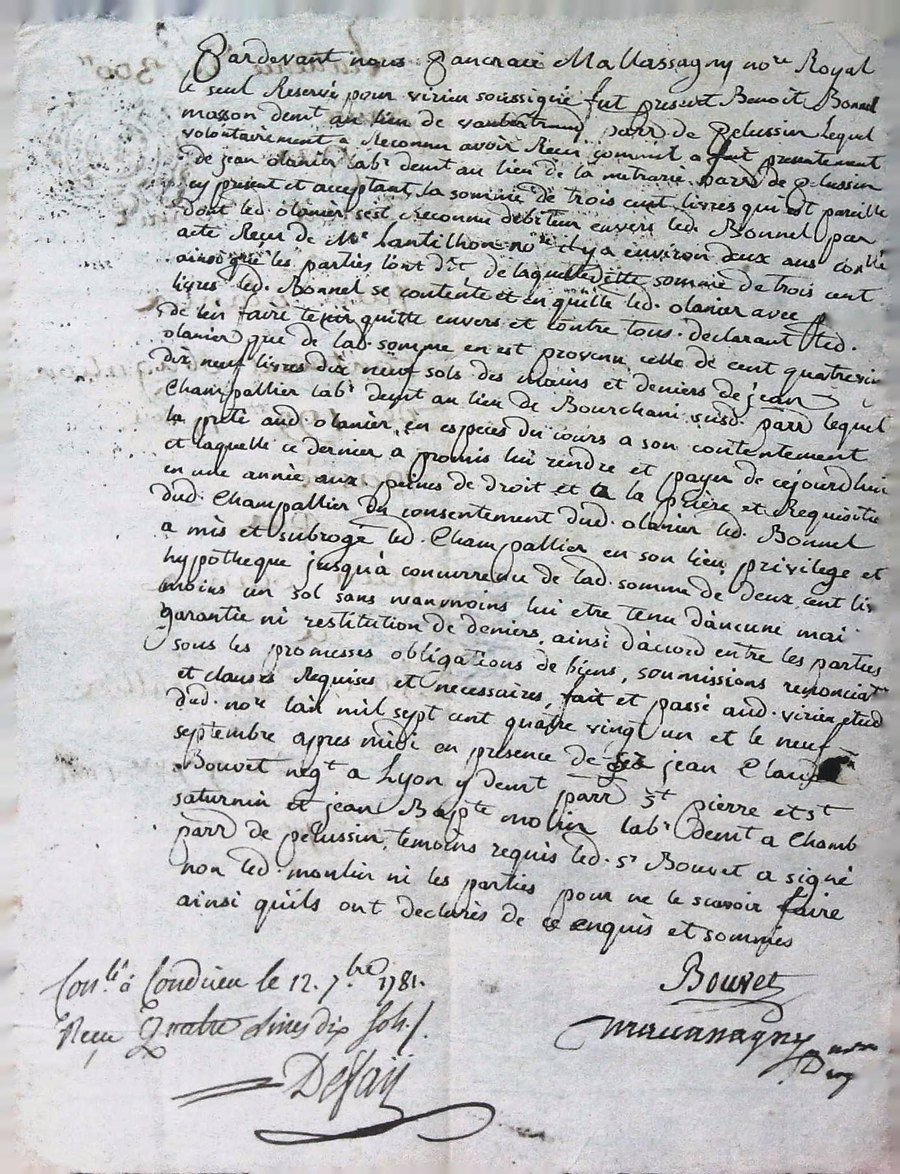 Pardevant nous Pancrace Mallassagny no.re Royal
le seul Reservé pour virieu soussigné fut present Benoit Bonnel
masson demt au lieu de vaubertrand parr de pelussin lequel
volontairement a Reconnu avoir Recu comme il a fait presentement
de jean olanier labr demt au lieu de la metrarie parr de pelussin
cy present et acceptant, la somme de trois cent livres qui est pareille
dont led. olanier s'est Reconnu debiteur envers led. Bonnel par
acte Recu de Me Lantilhon nore il y a environ deux ans conllé
ainsi que les parties l'ont dit de laquelle dette somme de trois cent
livres led. Bonnel se contente et en quitte led. olanier avec
de l'en faire tenir quitte envers et contre tous. declarant led.
olanier que de lad. somme en est provenu celle de cent quatrevin
dix neuf livres dix neuf sols des mains et deniers de jean
Champallier labr demt au lieu de Bourchani susd. parr lequel
la preté aud olanier, en especes du cours a son contentement
et laquelle ce dernier a promis lui rendre et payer de cejourdhui
en une année aux peines de droit et a la priere et Requisitio
dud. Champallier du consentement dud. olanier led. Bonnel
a mis et subrogé led. Champallier en son lieu, privilege et
hypotheque jusqu'a concurrence de lad. somme de deux cent liv
moins un sol sans neanmoins lui etre tenu d'aucune mai
garantie ni restitution de deniers, ainsi d'accord entre les parties
sous les promesses obligations de biens, soumissions renonciatns
et clauses Requises et necessaires, fait et passé aud. virieu etud
dud. nore l'an mil sept cent quatre vingt un et le neuf
septembre apres midi en presence de jean Claude
Bouvet negt a Lyon y demt parr st pierre et st
saturnin et jean Bapte molin labr demt a Chamb
parr de pelussin, temoins requis led. sr Bouvet a signé
non led. moulin ni les parties pour ne le scavoir faire
ainsi qu'ils ont declarés de ce enquis et sommés
Bouvet
Conlé à Condrieu le 12. 7.bre 1781.
Reçu Quatre Livres dix sols.
Mallassagny
Defaÿ